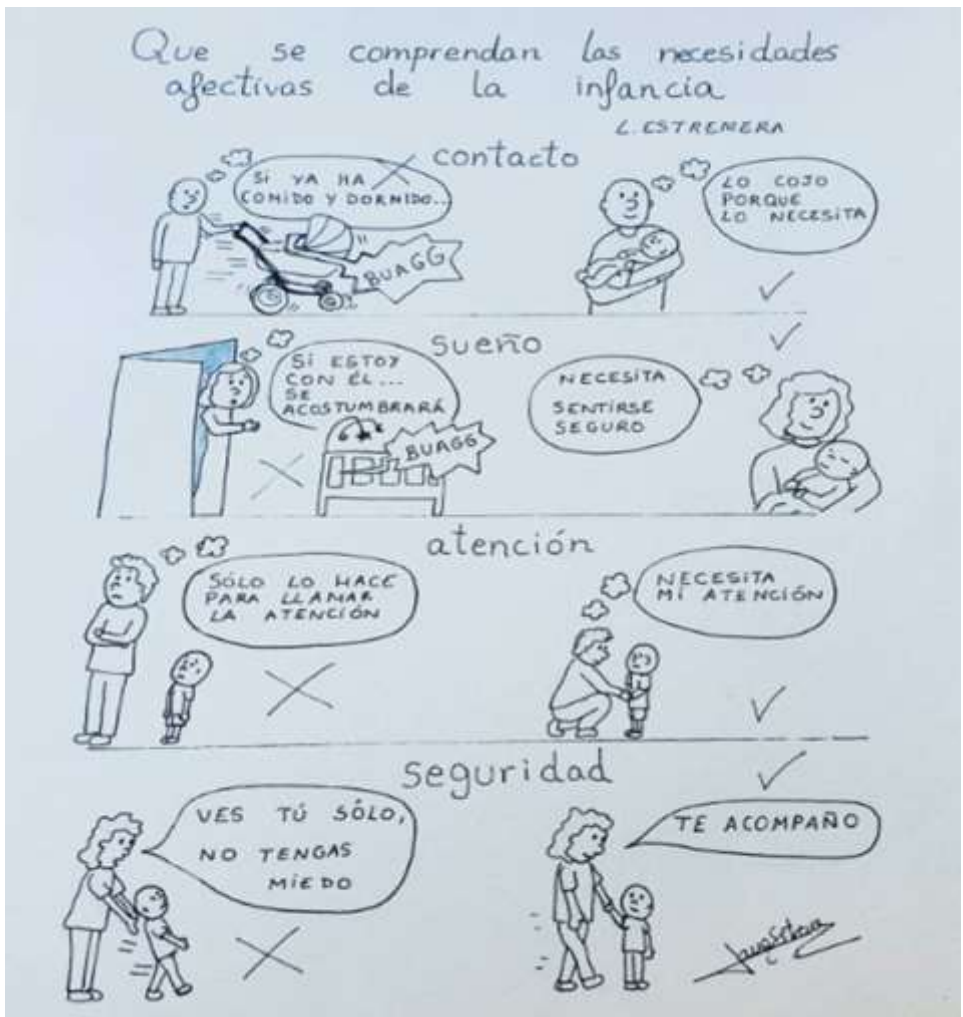 Que se comprendan las necesidades
afectivas de la infancia
L. ESTREMERA
contacto
SI YA HA
COMIDO Y DORMIDO...
BUAGG
LO COJO
PORQUE
LO NECESITA
sueño
SI ESTOY
CON ÉL...
SE
ACOSTUMBRARÁ
BUAGG
NECESITA
SENTIRSE
SEGURO
atención
SÓLO LO HACE
PARA LLAMAR
LA ATENCIÓN
NECESITA
MI ATENCIÓN
seguridad
VES TÚ SÓLO,
NO TENGAS
MIEDO
TE ACOMPAÑO